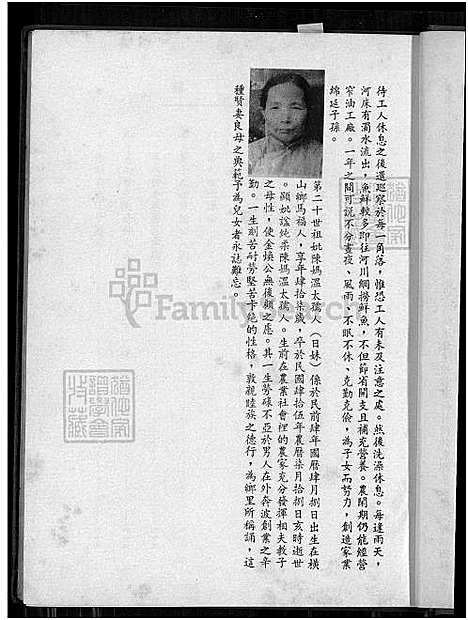 待工人休息之後還巡察於每一角落，惟恐工人有未及注意之處。然後洗澡休息。每逢雨天，
河床有濁水流出，魚鮮較多即往河川網撈鮮魚，不但節省開支且補充營養。農閒期仍能經營
窄油工廠。一年之間可說不分晝夜、風雨、不眠不休、克勤克儉，為子女而努力，創造家業
綿延子孫。
第二十世祖妣陳媽溫太孺人（日妹）係於民前肆年國曆肆月捌日出生在橫
山鄉馬福人，享年肆拾柒歲，卒於民國肆拾伍年農曆柒月拾捌日亥時逝世
。顯妣諡純柔陳媽溫太孺人。生前在農業社會裡的農家充分發揮相夫教子
之母性，使金煥公無後顧之慮。其一生勞碌不亞於男人在外奔波創業之辛
勤。一生刻苦耐勞堅苦卡絕的性格，敦親睦族之德行，為鄉里所稱誦，這
種賢妻良母之典範予為兒女者永誌難忘。
FamilySearch